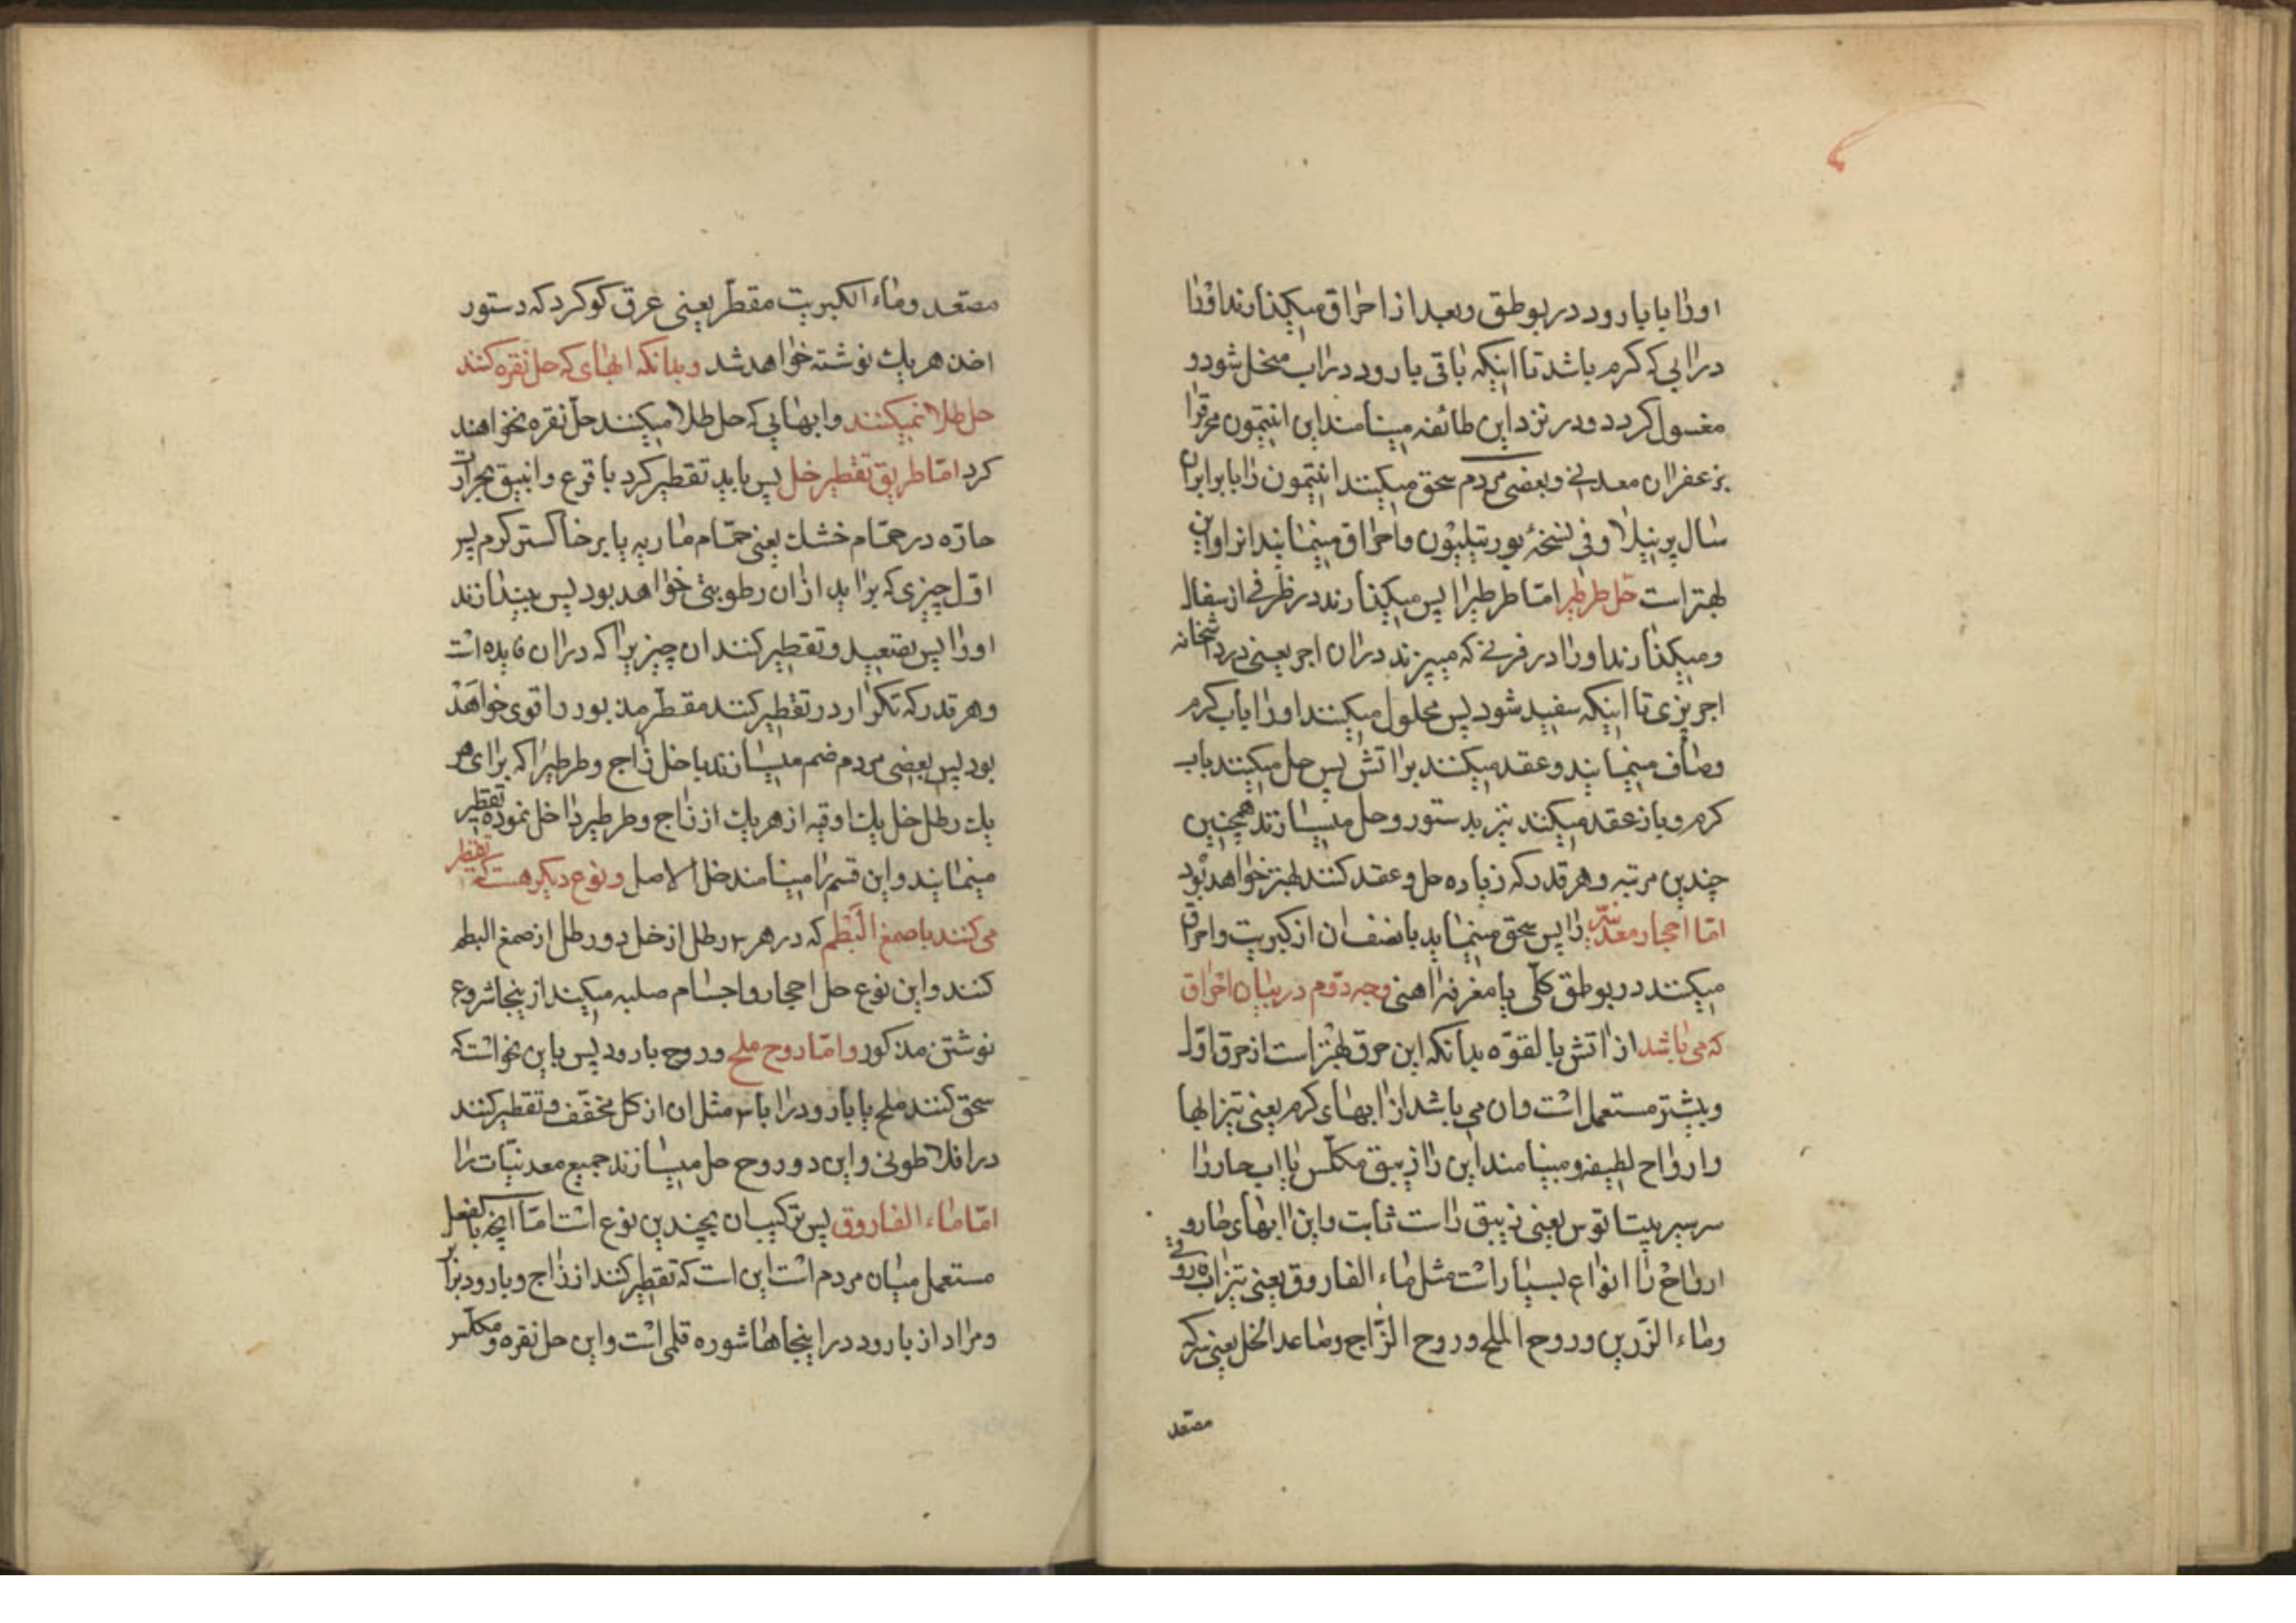 اورا با بارود در بوطق و بعد از احراق میکذارند اورا
درابی که کرم باشد تا اینکه باقی بارود دراب منحل شود و
مغسول کردد و در نزد این طائفه مینامند این انتیمون محرقرا
بزعفران معدنی و بعضی مردم سحق میکنند انتیمون را با برابران
سال پرنیلا و فی نسخهٔ بورتیلیون و احراق مینمایند انرا و این
بهتر است حل طرطیر اما طرطیرا پس میکذارند در ظرفی از سفال
و میکذارند اورا در فرنی که میپزند دران اجر یعنی در داشخانه
اجرپزی تا اینکه سفید شود پس محلول میکنند اورا باب کرم
و صاف مینمایند و عقد میکنند براتش پس حل میکنند باب
کرم و باز عقد میکنند نیز بدستور و حل میسازند همچنین
چندین مرتبه و هر قدر که زیاده حل و عقد کنند بهتر خواهد بود
اما احجار معدنیه را پس سحق مینماید با نصف ان از کبریت و احراق
میکنند در بوطق کلی یا مغرفهٔ اهنی وجه دوم در بیان احراق
که می باشد از اتش بالقوه بدانکه این حرق بهتر است از حرق اول
و بیشتر مستعمل است و ان می باشد از ابهای کرم یعنی تیزابها
و ارواح لطیفه و مینامند این را زیبق مکلس با اب حار را
سرسپریپیتاتوس یعنی زیبق راست ثابت و این ابهای حاره و
ارواح را انواع بسیار است مثل ماء الفاروق یعنی تیزاب فاروقی
و ماء الزرین و روح الملح و روح الزاج و صاعد الخل یعنی سرکه
مصعد
مصعد و ماء الکبریت مقطر یعنی عرق کوکرد که دستور
اخذ هر یك نوشته خواهد شد و بدانکه ابهای که حل نقره کنند
حل طلا نمیکنند و ابهایی که حل طلا میکنند حل نقره نخواهند
کرد اما طریق تقطیر خل پس باید تقطیر کرد با قرع و انبیق بحرارت
حاره در حمام خشك یعنی حمام ماریه یا بر خاکستر کرم پس
اول چیزی که براید ازان رطوبتی خواهد بود پس بیندازند
اورا پس تصعید و تقطیر کنند ان چیزیرا که دران فایده است
و هر قدر که تکرار در تقطیر کنند مقطر مذبور را قوی خواهد
بود پس بعضی مردم ضم میسازند با خل زاج و طرطیرا که برای هر
یك رطل خل یك اوقیه از هر یك از زاج و طرطیر داخل نموده تقطیر
مینمایند و این قسم را مینامند خل الاصل و نوع دیکر هست که تقطیر
می کنند با صمغ البطم که در هر ۳ رطل از خل دو رطل از صمغ البطم
کنند و این نوع حل احجار و اجسام صلبه میکنند از ینجا شروع
نوشتن مذکور و اما روح ملح و روح بارود پس باین نحو است که
سحق کنند ملح یا بارود را با ۳ مثل ان از کل مخفف و تقطیر کنند
در افلاطونی و این دو روح حل میسازند جمیع معدنیات را
اما ماء الفاروق پس ترکیب ان بچندین نوع است اما انچه بالفعل
مستعمل میان مردم است این است که تقطیر کنند از زاج و بارود برابر
و مراد از بارود در اینجاها شوره قلمی است و این حل نقره و مکلس